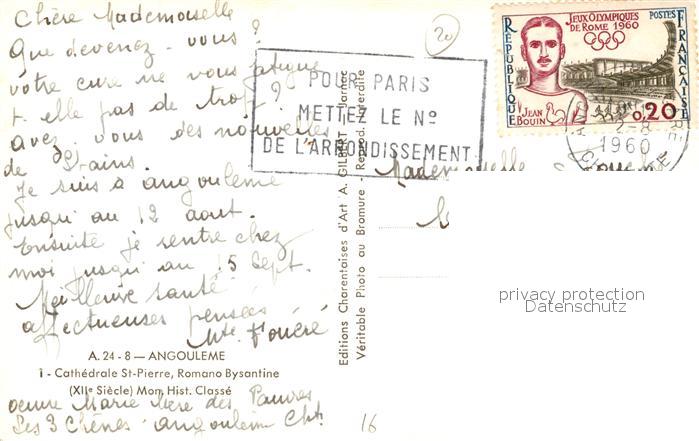 Chère Mademoiselle
Que devenez-vous ?
votre cure ne vous fatigue
t-elle pas de trop ?
avez-vous des nouvelles
de
Je suis à angoulême
jusqu'au 12 aout.
Ensuite je rentre chez
moi jusqu'au 15 Sept.
Meilleure santé
affectueuses pensées
A. 24-8 — ANGOULEME
1 - Cathédrale St-Pierre, Romano Bysantine
(XIIe Siècle) Mon. Hist. Classé
oeuvre Marie Mère des Pauvres
Les 3 Chênes - angoulême Cht
20
POUR PARIS
METTEZ LE No
DE L'ARRONDISSEMENT
Editions Charentaises d'Art A. GILBERT - Jarnac
Véritable Photo au Bromure - Reprod. Interdite
JEUX OLYMPIQUES
DE ROME 1960
POSTES
RÉPUBLIQUE
FRANÇAISE
JEAN
BOUIN
0,20
2-8
1960
Mademoiselle
privacy protection
Datenschutz
16